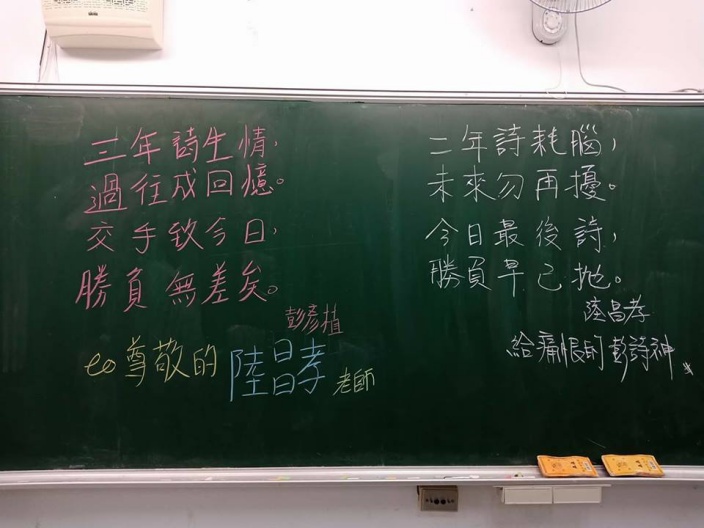 三年詩生情，
過往成回憶。
交手致今日，
勝負無差矣。
彭彥植
to 尊敬的 陸昌孝 老師
二年詩耗腦，
未來勿再擾。
今日最後詩，
勝負早已拋。
陸昌孝
給痛恨的彭詩神